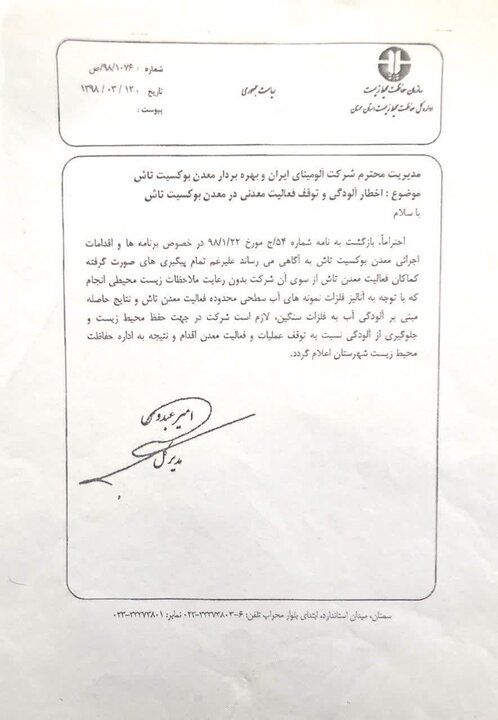 شماره : ۹۸/۱۰۷۶/ص
تاریخ : ۱۳۹۸ / ۰۳ / ۱۲
پیوست :
ریاست جمهوری
سازمان حفاظت محیط زیست
اداره کل حفاظت محیط زیست استان سمنان
مدیریت محترم شرکت آلومینای ایران و بهره بردار معدن بوکسیت تاش
موضوع : اخطار آلودگی و توقف فعالیت معدنی در معدن بوکسیت تاش
با سلام
احتراماً، بازگشت به نامه شماره ۵۴/ج مورخ ۹۸/۱/۲۲ در خصوص برنامه ها و اقدامات
اجرائی معدن بوکسیت تاش به آگاهی می رساند علیرغم تمام پیگیری های صورت گرفته
کماکان فعالیت معدن تاش از سوی آن شرکت بدون رعایت ملاحظات زیست محیطی انجام
که با توجه به آنالیز فلزات نمونه های آب سطحی محدوده فعالیت معدن تاش و نتایج حاصله
مبنی بر آلودگی آب به فلزات سنگین، لازم است شرکت در جهت حفظ محیط زیست و
جلوگیری از آلودگی نسبت به توقف عملیات و فعالیت معدن اقدام و نتیجه به اداره حفاظت
محیط زیست شهرستان اعلام گردد.
امیر عبدوس
مدیر کل
سمنان، میدان استاندارد، ابتدای بلوار محراب تلفن: ۶-۰۲۳-۳۳۳۷۳۸۰۳ نمابر: ۰۲۳-۳۳۳۷۳۸۰۱